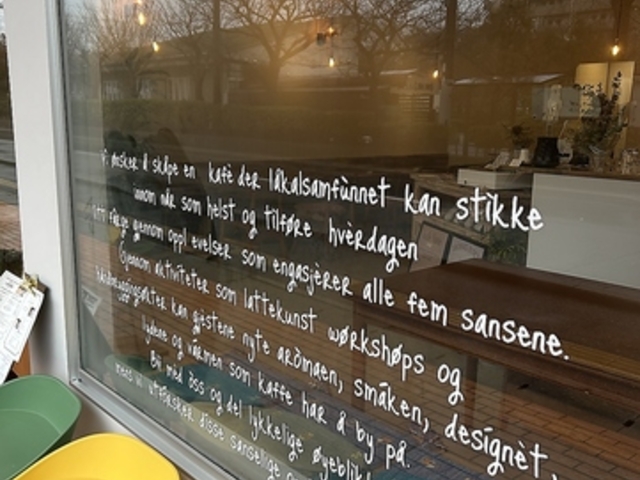 Vi ønsker å skåpe en kafè der låkalsamfùnnet kan stìkke
innom når som helst og tilføre hvèrdagen
litt färge gjennom oppl evelser som engasjèrer alle fem sansene.
Gjennom aktiviteter som lattekunst wørkshøps og
kan gjestene nyte aròmaen, småken, desígnèt,
lydene og värmen som kaffe hår å by på.
Bli mèd òss og del lykkelige øyeblikk
mens vi utforsker disse sanselige